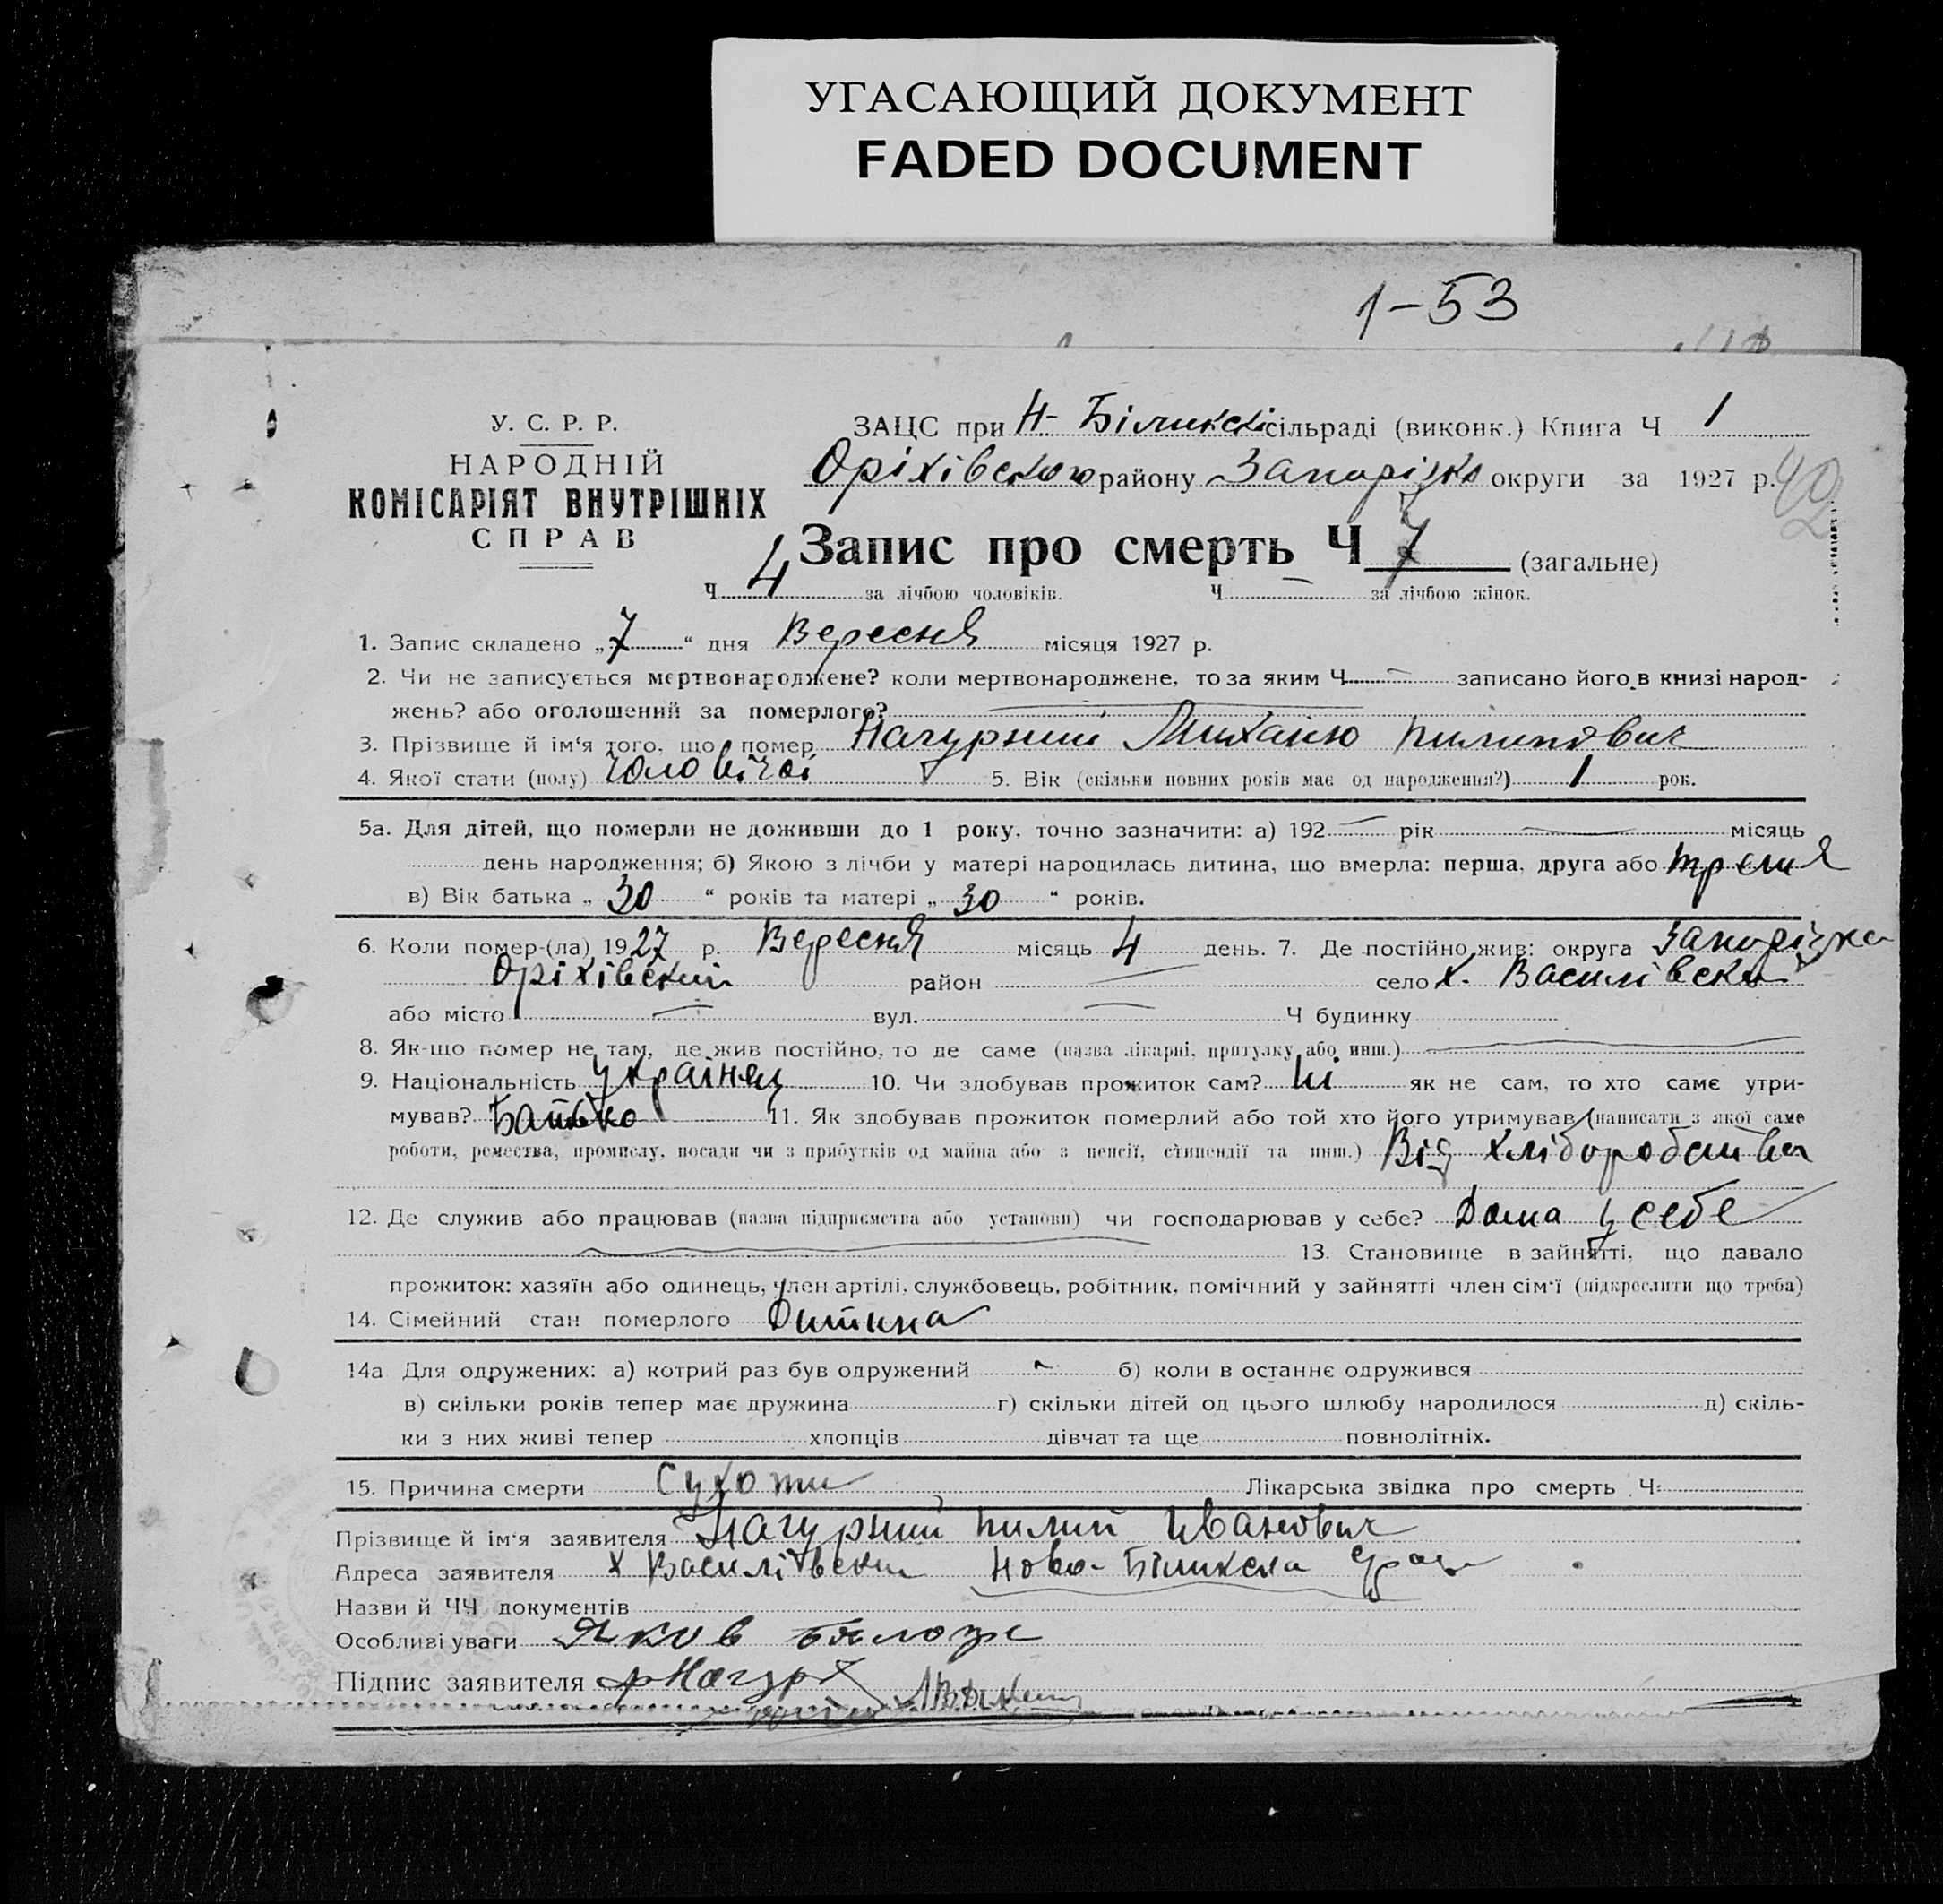 УГАСАЮЩИЙ ДОКУМЕНТ
FADED DOCUMENT
1-53
У. С. Р. Р.
НАРОДНІЙ
КОМІСАРІЯТ ВНУТРІШНІХ
СПРАВ
ЗАЦС при Н- Біликскі сільраді (виконк.) Книга Ч 1
Оріхівского району Запоріжко округи за 1927 р. 42
Запис про смерть Ч 7 (загальне)
Ч 4 за лічбою чоловіків. Ч — за лічбою жінок.
1. Запис складено „7“ дня Вересня місяця 1927 р.
2. Чи не записується мертвонароджене? коли мертвонароджене, то за яким Ч — записано його в книзі народ-
жень? або оголошений за померлого?
3. Прізвище й ім'я того, що помер Нагурний Михайло Пилипович
4. Якої стати (полу) Чоловічої 5. Вік (скільки повних років має од народження?) 1 рок.
5а. Для дітей, що померли не доживши до 1 року, точно зазначити: а) 192 — рік — місяць
день народження; б) Якою з лічби у матері народилась дитина, що вмерла: перша, друга або третя
в) Вік батька „30“ років та матері „30“ років.
6. Коли помер-(ла) 1927 р. Вересня місяць 4 день. 7. Де постійно жив: округа Запоріжка
Оріхівский район — село х. Василівски
або місто — вул. — Ч будинку
8. Як-що помер не там, де жив постійно, то де саме (назва лікарні, притулку або инш.)
9. Національність Українец 10. Чи здобував прожиток сам? Ні як не сам, то хто саме утри-
мував? Батько 11. Як здобував прожиток померлий або той хто його утримував (написати з якої саме
роботи, ремества, промислу, посади чи з прибутків од майна або з пенсії, стипендії та инш.) Від хліборобства
12. Де служив або працював (назва підприємства або установи) чи господарював у себе? Дома у себе
13. Становище в зайнятті, що давало
прожиток: хазяїн або одинець, член артілі, службовець, робітник, помічний у зайнятті член сім'ї (підкреслити що треба)
14. Сімейний стан померлого Дитина
14а Для одружених: а) котрий раз був одружений б) коли в останнє одружився
в) скільки років тепер має дружина г) скільки дітей од цього шлюбу народилося д) скіль-
ки з них живі тепер хлопців дівчат та ще повнолітніх.
15. Причина смерти Сухоти Лікарська звідка про смерть Ч:
Прізвище й ім'я заявителя Нагурний Пилип Иванович
Адреса заявителя х Василівски Ново-Біликска
Назви й ЧЧ документів
Особливі уваги Яков
Підпис заявителя